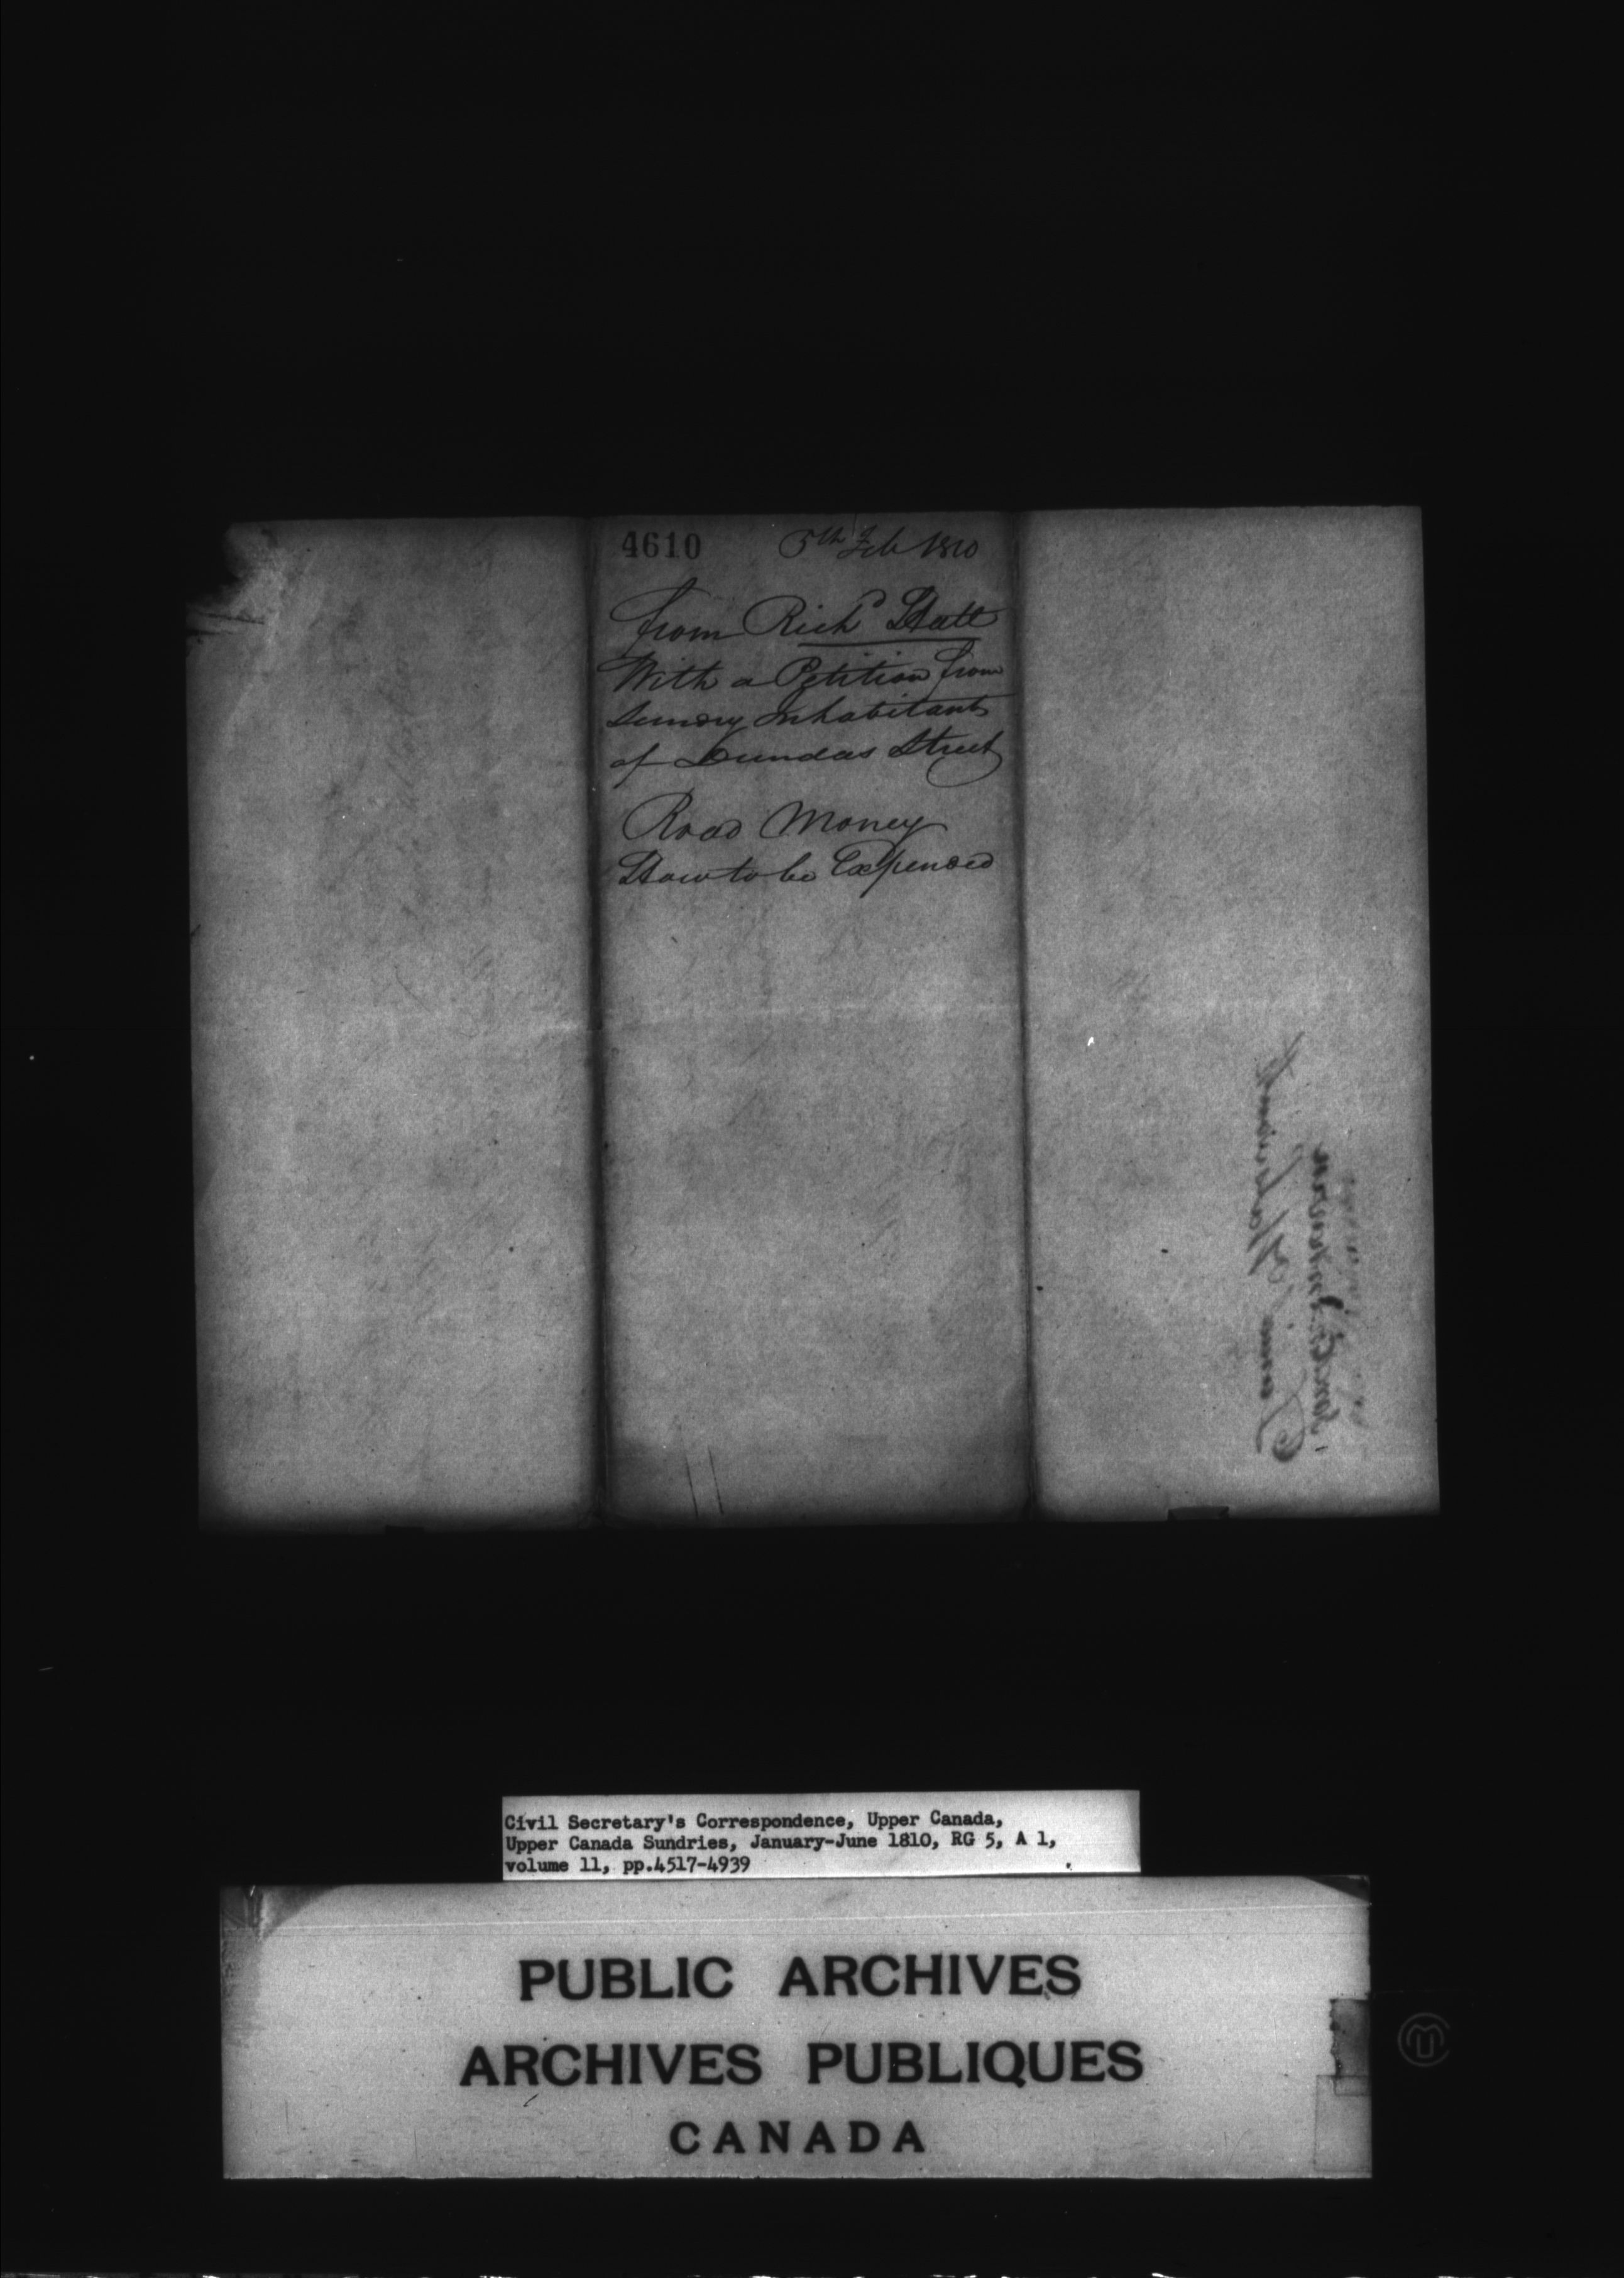 4610 5th Feb 1810
From Richd Hatt
With a Petition from
Sundry Inhabitants
of Dundas Street
Road Money
How to be Expended
Civil Secretary's Correspondence, Upper Canada,
Upper Canada Sundries, January-June 1810, RG 5, A 1,
volume 11, pp.4517-4939
PUBLIC ARCHIVES
ARCHIVES PUBLIQUES
CANADA